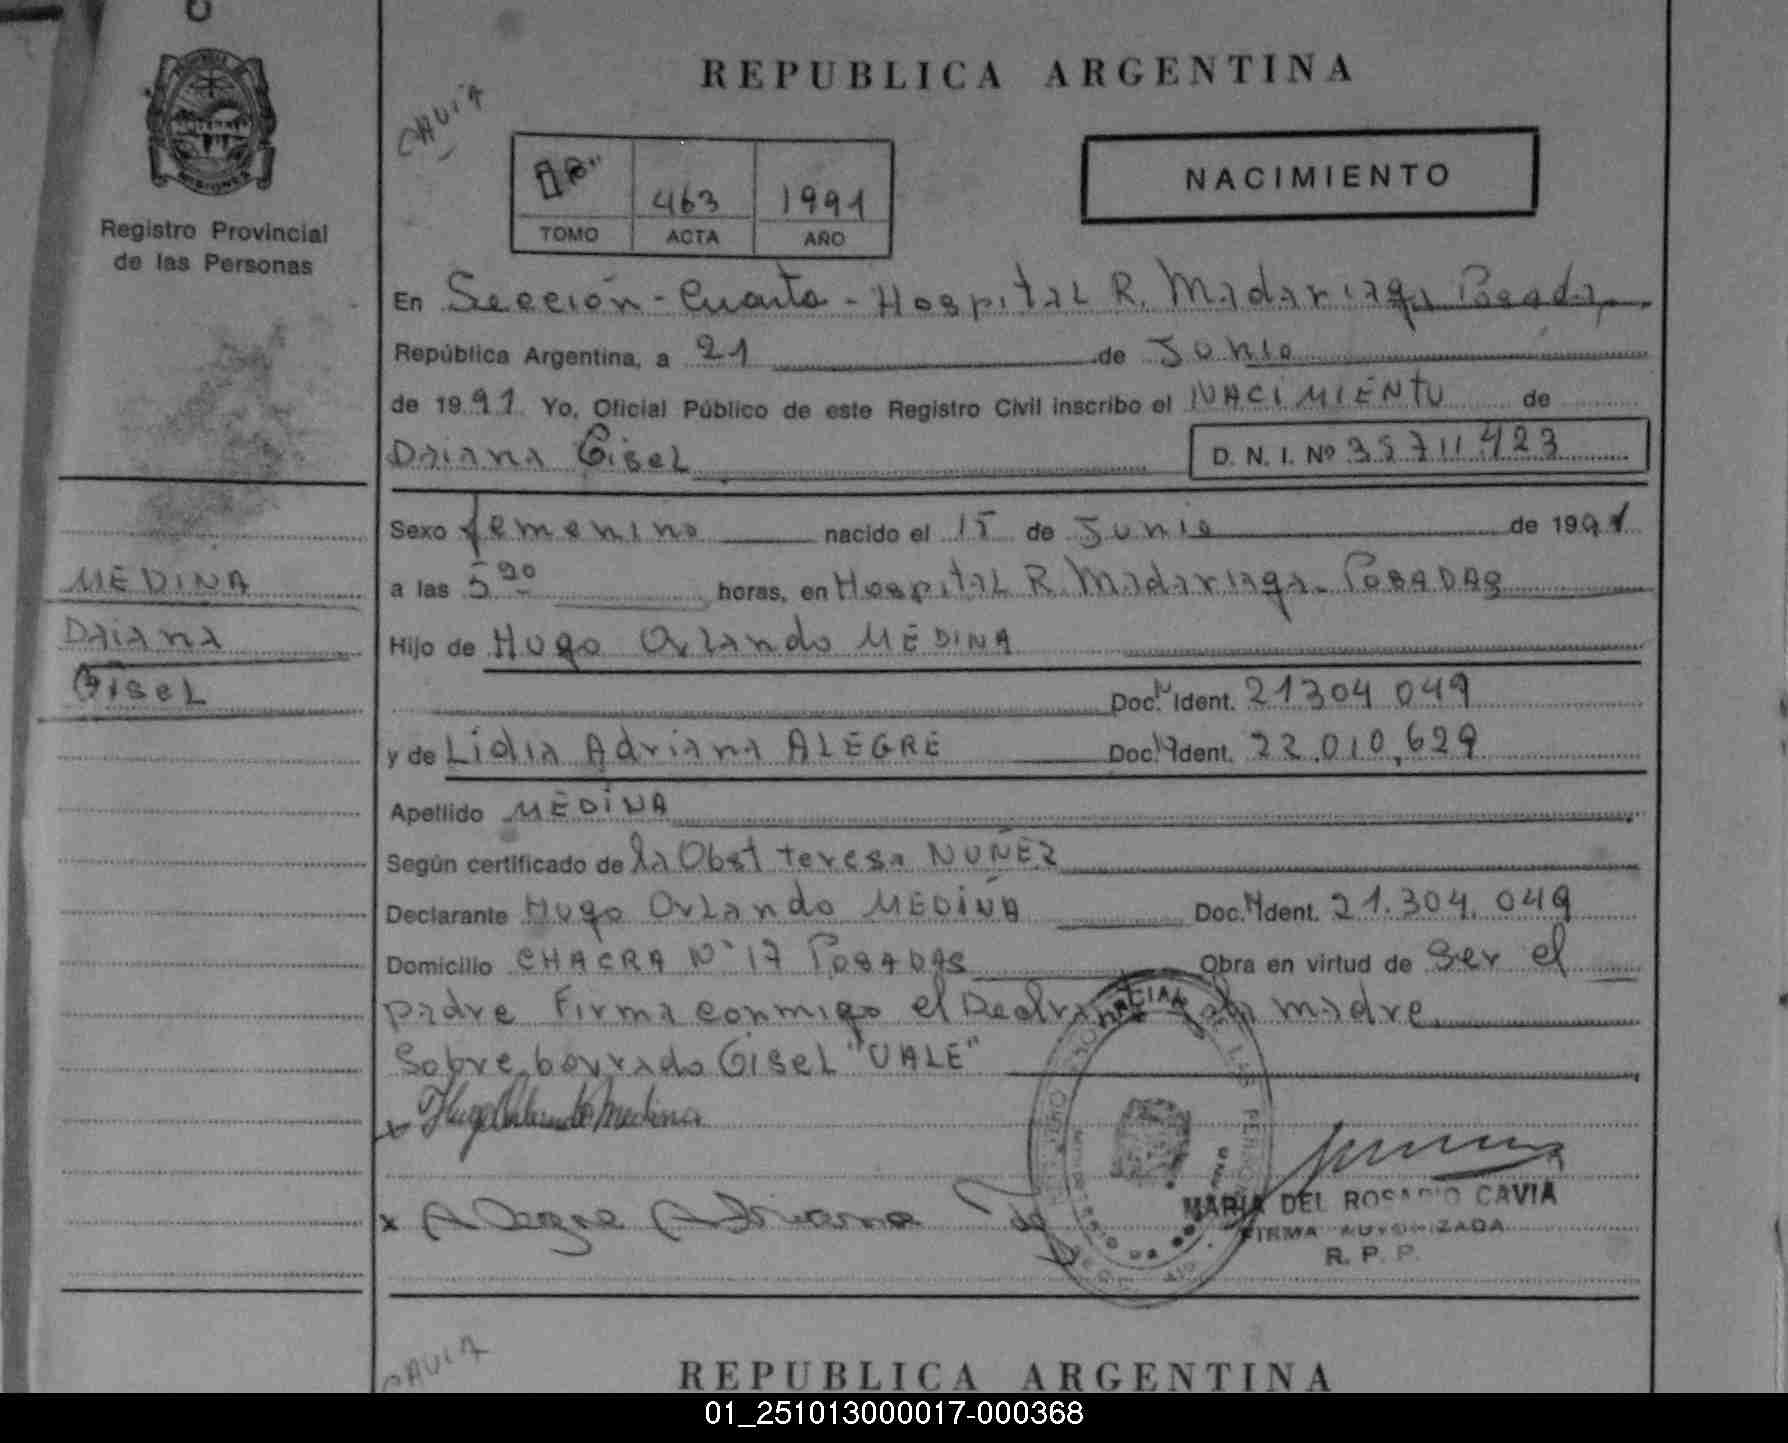 REPUBLICA ARGENTINA
CAVIA
MISIONES
Registro Provincial
de las Personas
463 1991
TOMO ACTA AÑO
NACIMIENTO
En Sección - Cuarta - Hospital R. Madariaga Posadas
República Argentina, a 21 de Junio
de 1991 Yo, Oficial Público de este Registro Civil inscribo el NACIMIENTO de
Daiana Gisel D. N. I. Nº 35711.423
Sexo femenino nacido el 15 de Junio de 1991
a las 5 horas, en Hospital R. Madariaga - POSADAS
Hijo de Hugo Orlando MEDINA
Doc. N Ident. 21304 049
y de Lidia Adriana ALEGRE Doc. N Ident. 22.010.629
Apellido MEDINA
Según certificado de la Obst teresa NUÑEZ
Declarante Hugo Orlando MEDINA Doc. N Ident. 21.304.049
Domicilio CHACRA Nº 17 POSADAS Obra en virtud de Ser el
padre Firma conmigo el madre
Sobre borrado Gisel "VALE"
x Hugo Orlando Medina
x Alegre Adriana
MARIA DEL ROSARIO CAVIA
FIRMA AUTORIZADA
R. P. P.
MEDINA
Daiana
Gisel
CAVIA
REPUBLICA ARGENTINA
01_251013000017-000368